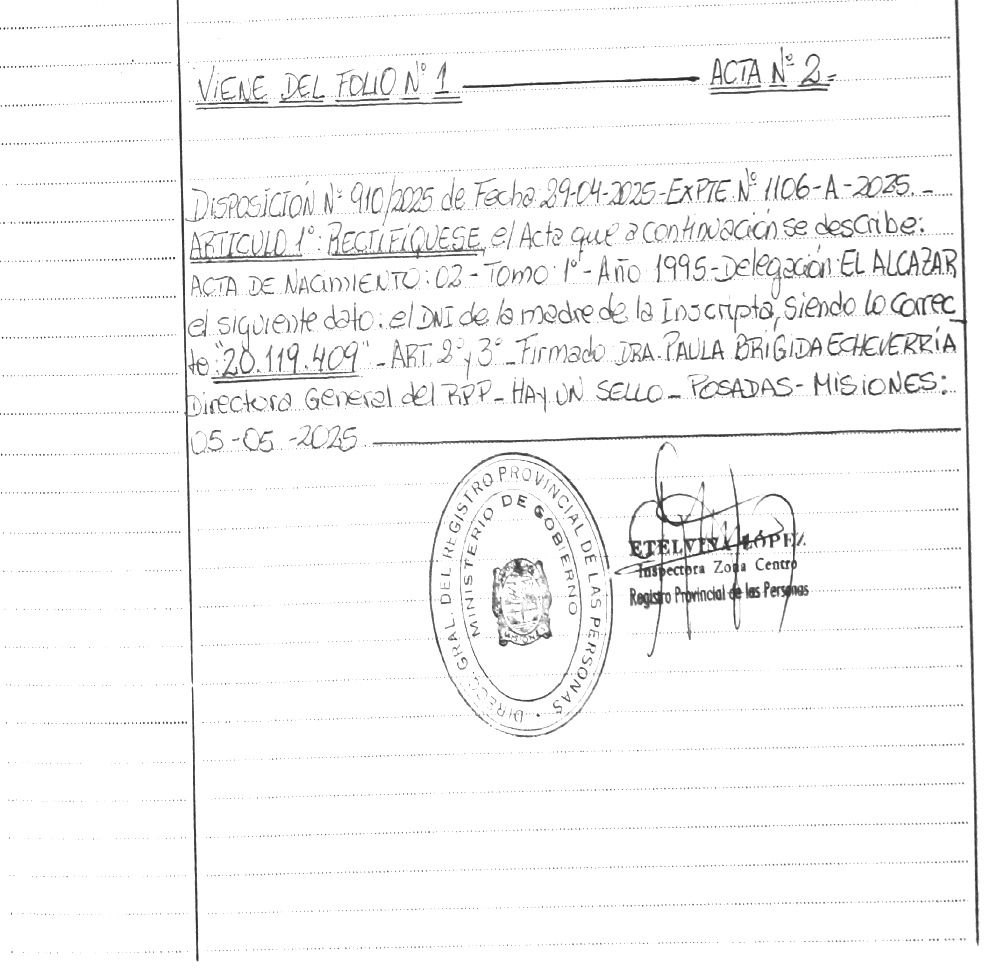 VIENE DEL FOLIO N° 1 ACTA N° 2=
DISPOSICIÓN N° 910/2025 de Fecha 29-04-2025-EXPTE.N° 1106-A-2025.-
ARTICULO 1°: RECTIFÍQUESE, el Acta que a continuación se describe:
ACTA DE NACIMIENTO: 02-Tomo:1°-Año 1995-Delegación: EL ALCAZAR
el siguiente dato: el DNI de la madre de la Inscripta, siendo lo correc_
to: "20.119.409"-ART. 2° y 3°-Firmado DRA. PAULA BRÍGIDA ECHEVERRÍA
Directora General del RPP-HAY UN SELLO-POSADAS-MISIONES:
05-05-2025
DIRECC. GRAL. DEL REGISTRO PROVINCIAL DE LAS PERSONAS
MINISTERIO DE GOBIERNO
MISIONES
ETELVINA LÓPEZ
Inspectora Zona Centro
Registro Provincial de las Personas